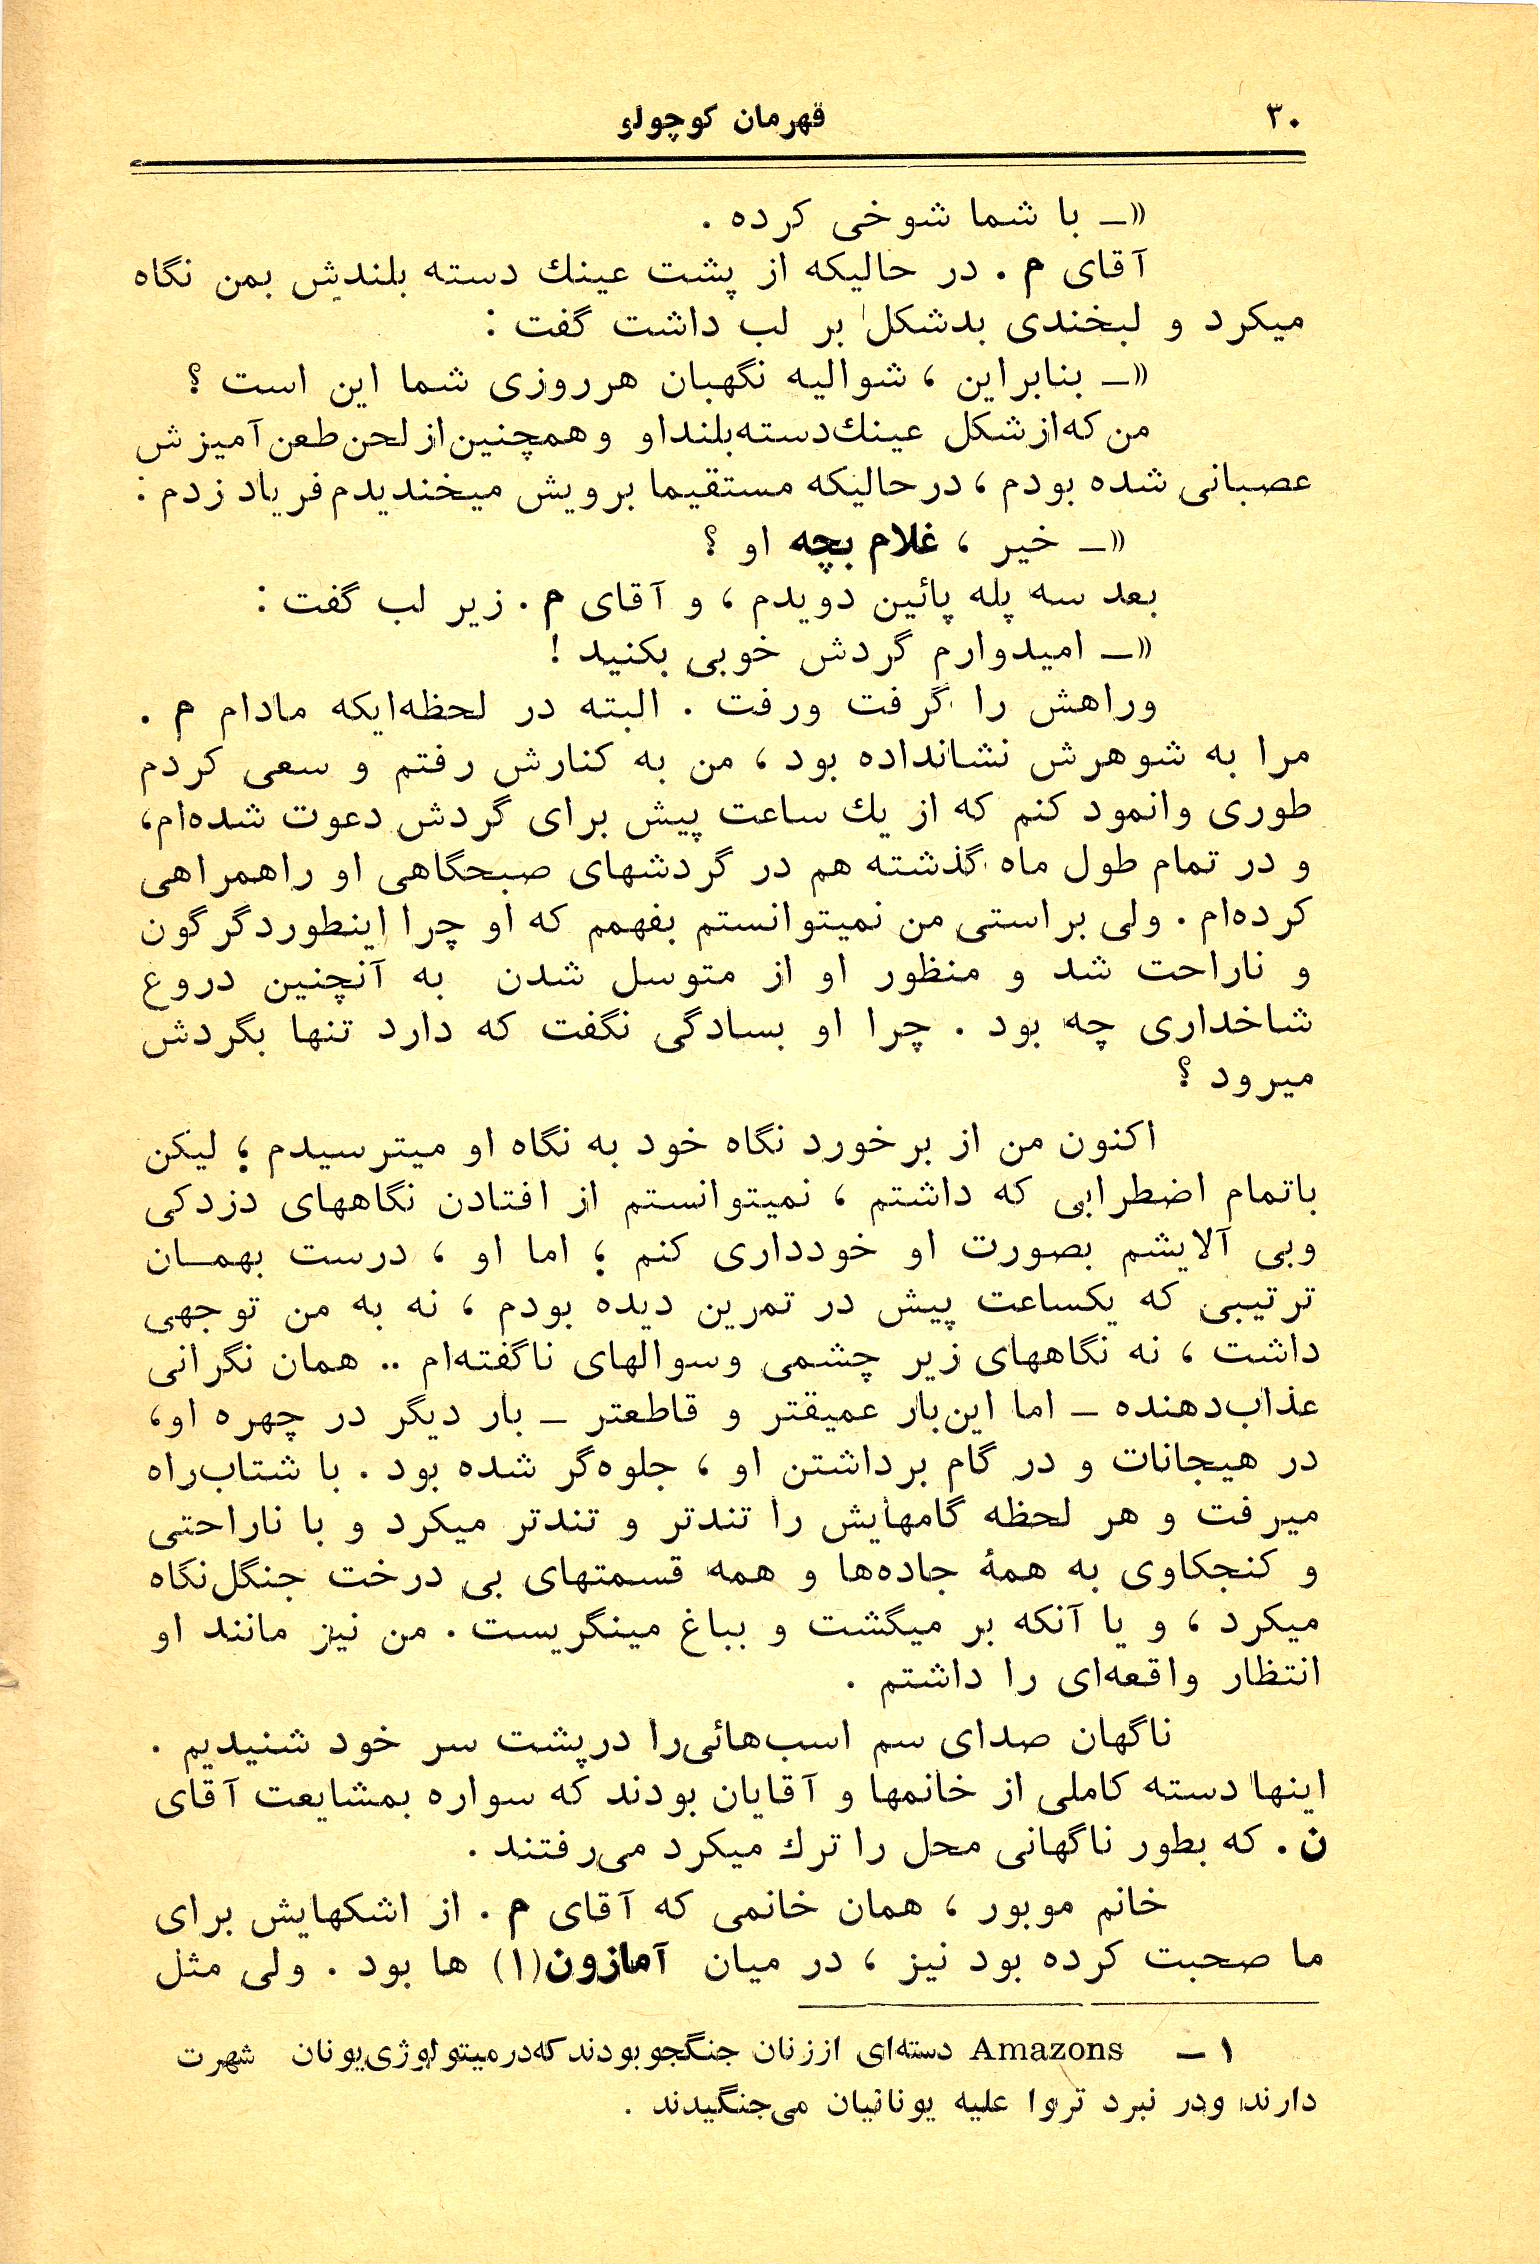 ۳۰
قهرمان کوچولو
«ــ با شما شوخی کرده .
آقای م . در حالیکه از پشت عینك دسته بلندش بمن نگاه
میکرد و لبخندی بدشکل بر لب داشت گفت :
«ــ بنابراین ، شوالیه نگهبان هرروزی شما این است ؟
من که از شکل عینك دسته بلند او و همچنین از لحن طعن آمیزش
عصبانی شده بودم ، در حالیکه مستقیما برویش میخندیدم فریاد زدم :
«ــ خیر ، غلام بچه او ؟
بعد سه پله پائین دویدم ، و آقای م . زیر لب گفت :
«ــ امیدوارم گردش خوبی بکنید !
وراهش را گرفت ورفت . البته در لحظه‌ایکه مادام م .
مرا به شوهرش نشانداده بود ، من به کنارش رفتم و سعی کردم
طوری وانمود کنم که از یك ساعت پیش برای گردش دعوت شده‌ام،
و در تمام طول ماه گذشته هم در گردشهای صبحگاهی او راهمراهی
کرده‌ام . ولی براستی من نمیتوانستم بفهمم که او چرا اینطوردگرگون
و ناراحت شد و منظور او از متوسل شدن به آنچنین دروغ
شاخداری چه بود . چرا او بسادگی نگفت که دارد تنها بگردش
میرود ؟
اکنون من از برخورد نگاه خود به نگاه او میترسیدم ؛ لیکن
باتمام اضطرابی که داشتم ، نمیتوانستم از افتادن نگاههای دزدکی
وبی آلایشم بصورت او خودداری کنم ؛ اما او ، درست بهمـان
ترتیبی که یکساعت پیش در تمرین دیده بودم ، نه به من توجهی
داشت ، نه نگاههای زیر چشمی وسوالهای ناگفته‌ام .. همان نگرانی
عذاب‌دهنده ــ اما این‌بار عمیقتر و قاطعتر ــ بار دیگر در چهره او،
در هیجانات و در گام برداشتن او ، جلوه‌گر شده بود . با شتاب‌راه
میرفت و هر لحظه گامهایش را تندتر و تندتر میکرد و با ناراحتی
و کنجکاوی به همهٔ جاده‌ها و همه قسمتهای بی درخت جنگل‌نگاه
میکرد ، و یا آنکه بر میگشت و بباغ مینگریست . من نیز مانند او
انتظار واقعه‌ای را داشتم .
ناگهان صدای سم اسب‌هائی‌را درپشت سر خود شنیدیم .
اینها دسته کاملی از خانمها و آقایان بودند که سواره بمشایعت آقای
ن . که بطور ناگهانی محل را ترك میکرد می‌رفتند .
خانم موبور ، همان خانمی که آقای م . از اشکهایش برای
ما صحبت کرده بود نیز ، در میان آمازون(۱) ها بود . ولی مثل
۱ ــ Amazons دسته‌ای اززنان جنگجو بودند که‌در میتولوژی‌یونان شهرت
دارند ودر نبرد تروا علیه یونانیان می‌جنگیدند .